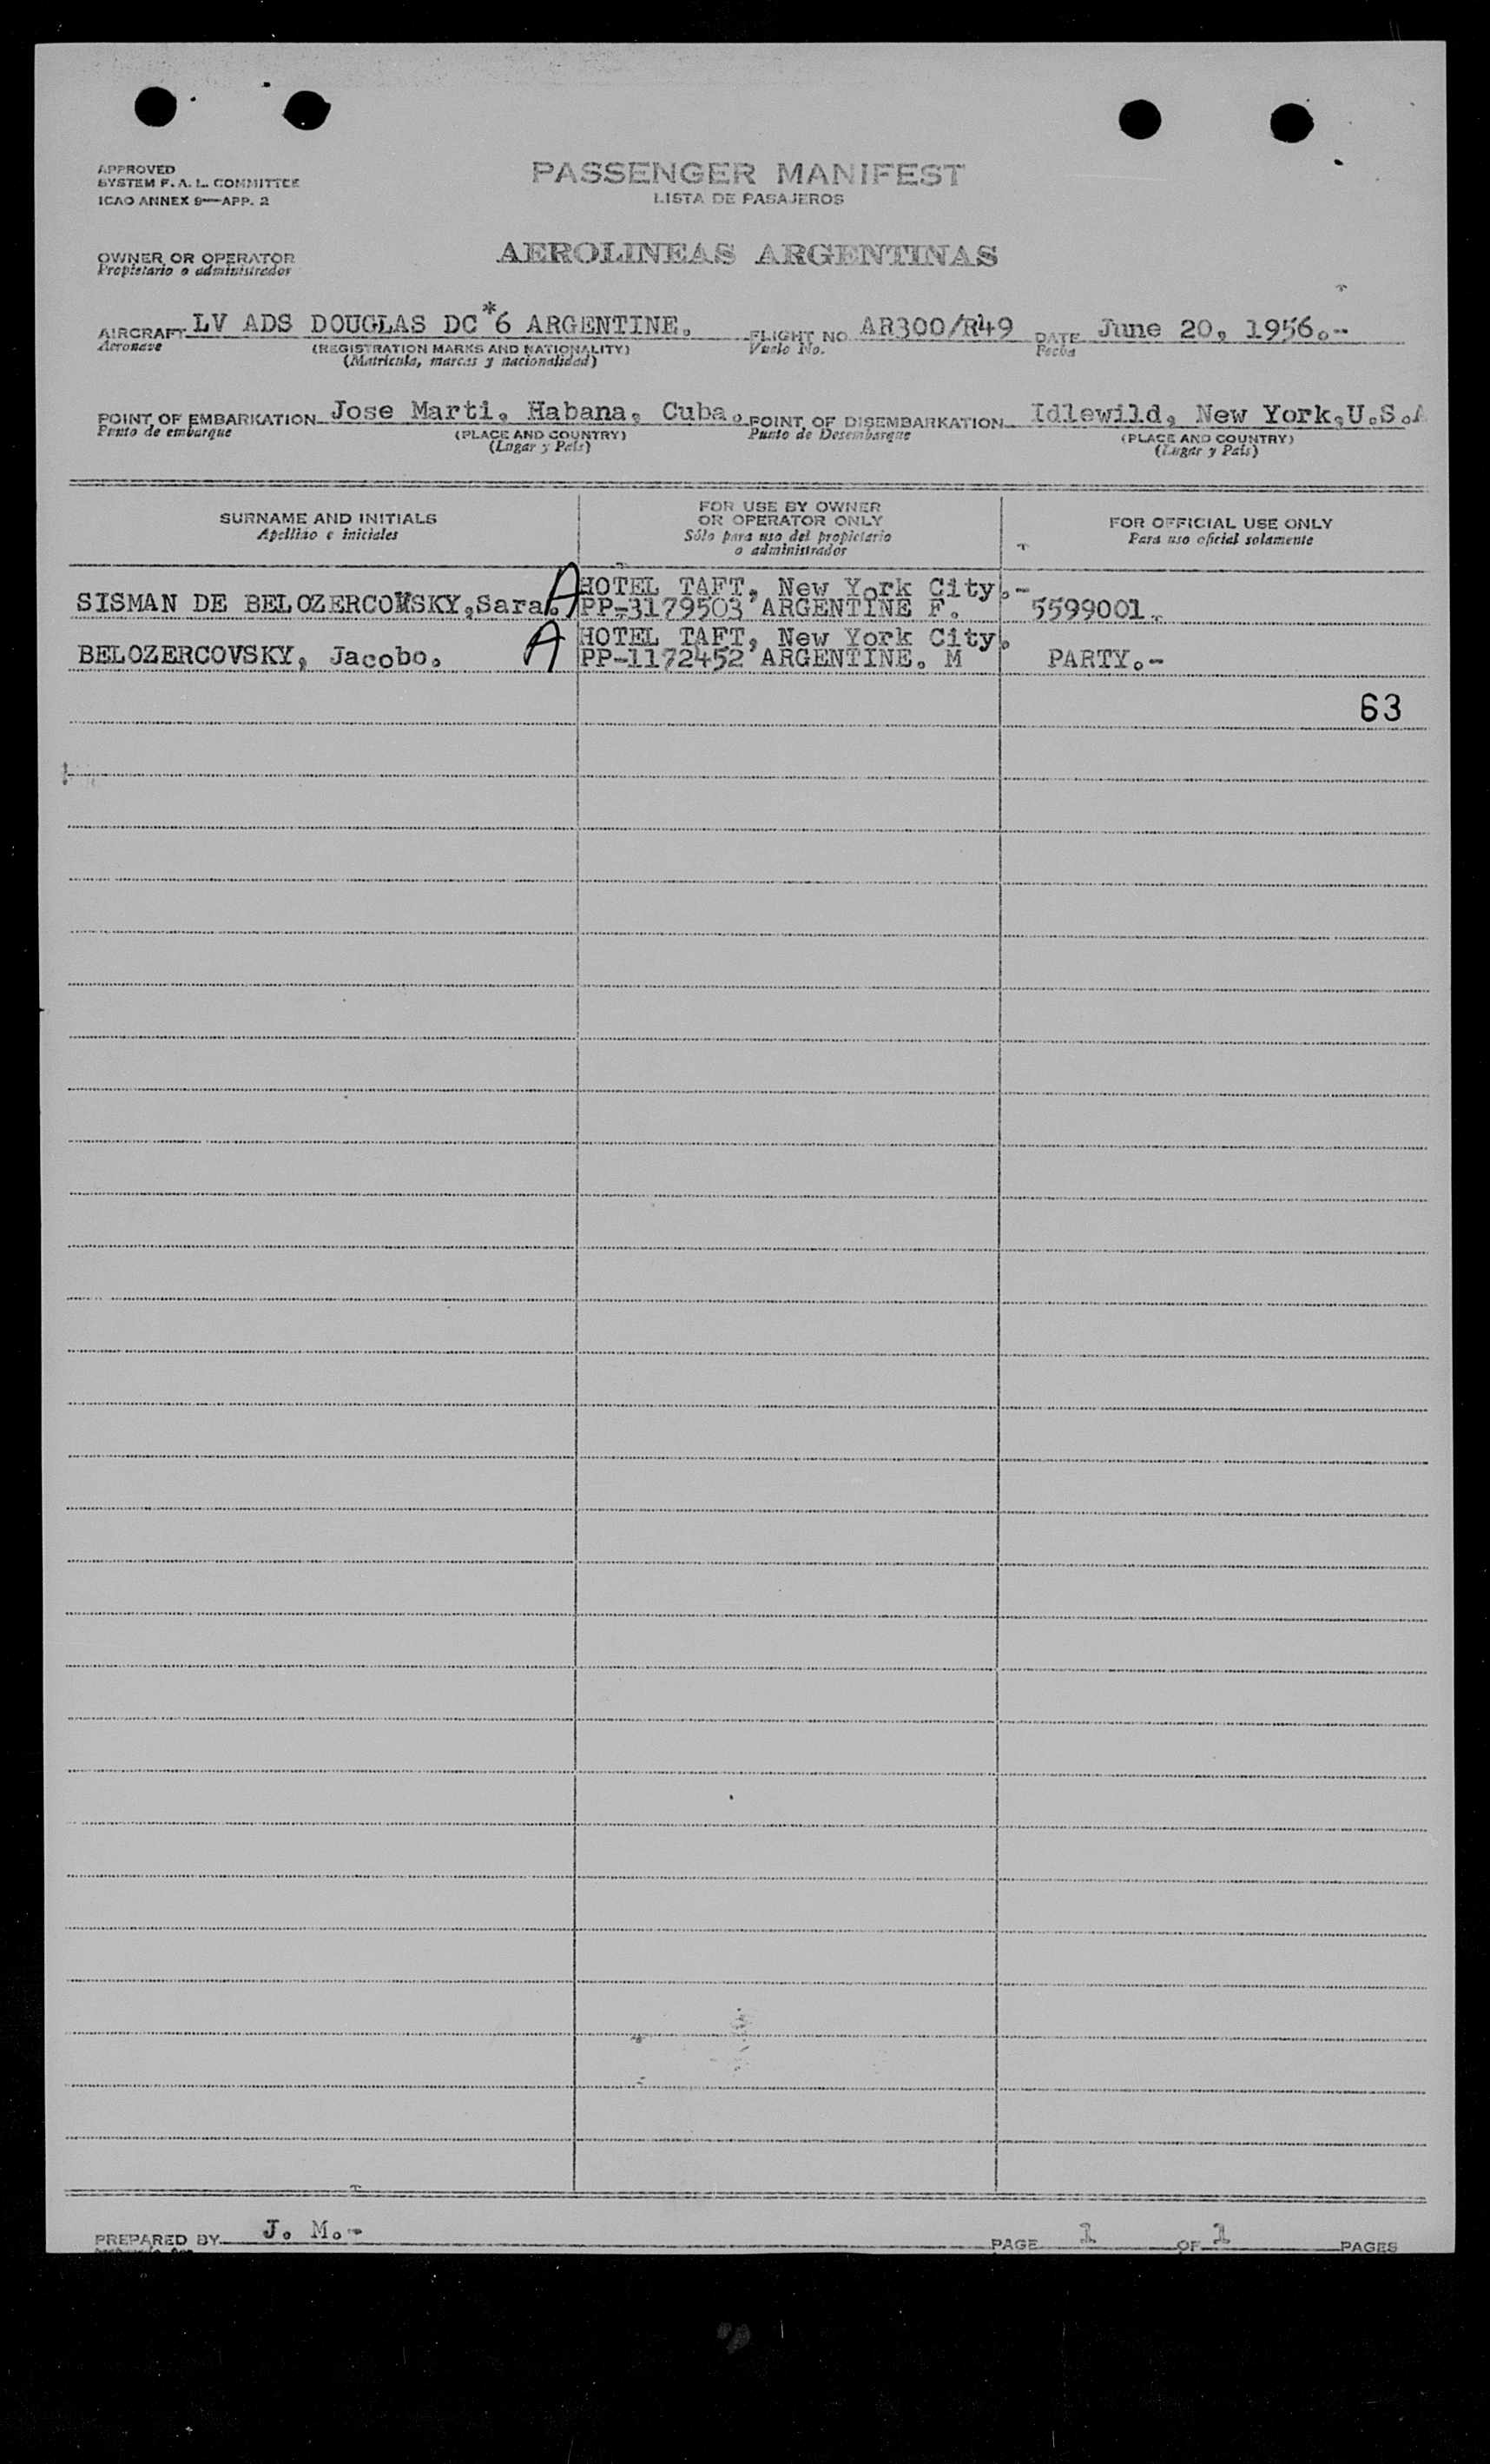 APPROVED
SYSTEM F. A. L. COMMITTEE
ICAO ANNEX 9—APP. 2
PASSENGER MANIFEST
LISTA DE PASAJEROS
OWNER OR OPERATOR
Propietario o administrador
AEROLINEAS ARGENTINAS
AIRCRAFT LV ADS DOUGLAS DC*6 ARGENTINE. FLIGHT NO. AR300/R49 DATE June 20, 1956.-
Aeronave (REGISTRATION MARKS AND NATIONALITY) Vuelo No. Fecha
(Matricula, marcas y nacionalidad)
POINT OF EMBARKATION Jose Marti, Habana, Cuba. POINT OF DISEMBARKATION Idlewild, New York,U.S.A
Punto de embarque (PLACE AND COUNTRY) Punto de Desembarque (PLACE AND COUNTRY)
(Lugar y País) (Lugar y País)
SURNAME AND INITIALS
Apellido e iniciales
FOR USE BY OWNER
OR OPERATOR ONLY
Sólo para uso del propietario
o administrador
FOR OFFICIAL USE ONLY
Para uso oficial solamente
HOTEL TAFT, New York City.-
SISMAN DE BELOZERCOVSKY,Sara. A PP-3179503 ARGENTINE F. 5599001.
HOTEL TAFT, New York City.
BELOZERCOVSKY, Jacobo. A PP-1172452 ARGENTINE. M PARTY.-
63
PREPARED BY J. M.- PAGE 1 OF 1 PAGES